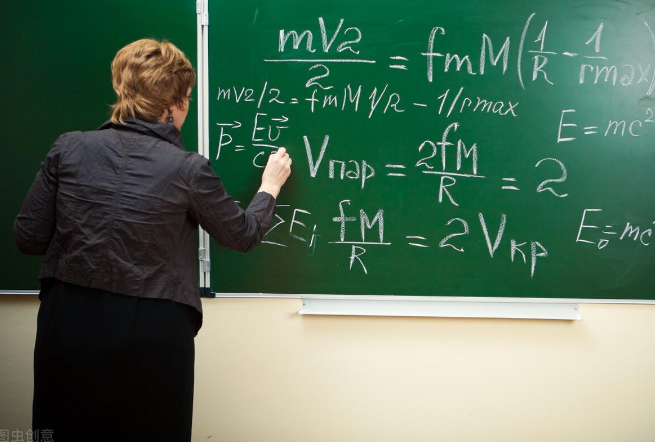 mV2/2 = fmM(1/R - 1/rmax)
mv2/2 = fmM1/R - 1/rmax
E = mc²
p⃗ = Ev⃗/c
Vпар = 2fM/R = 2
ΣEi fM/R = 2Vкр
E₀ = mc
图虫创意